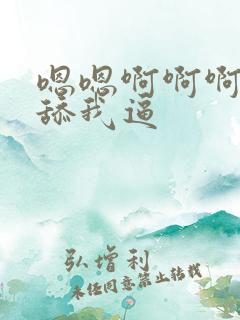 嗯嗯啊啊啊
舔我逼
弘增利
未经同意禁止转载